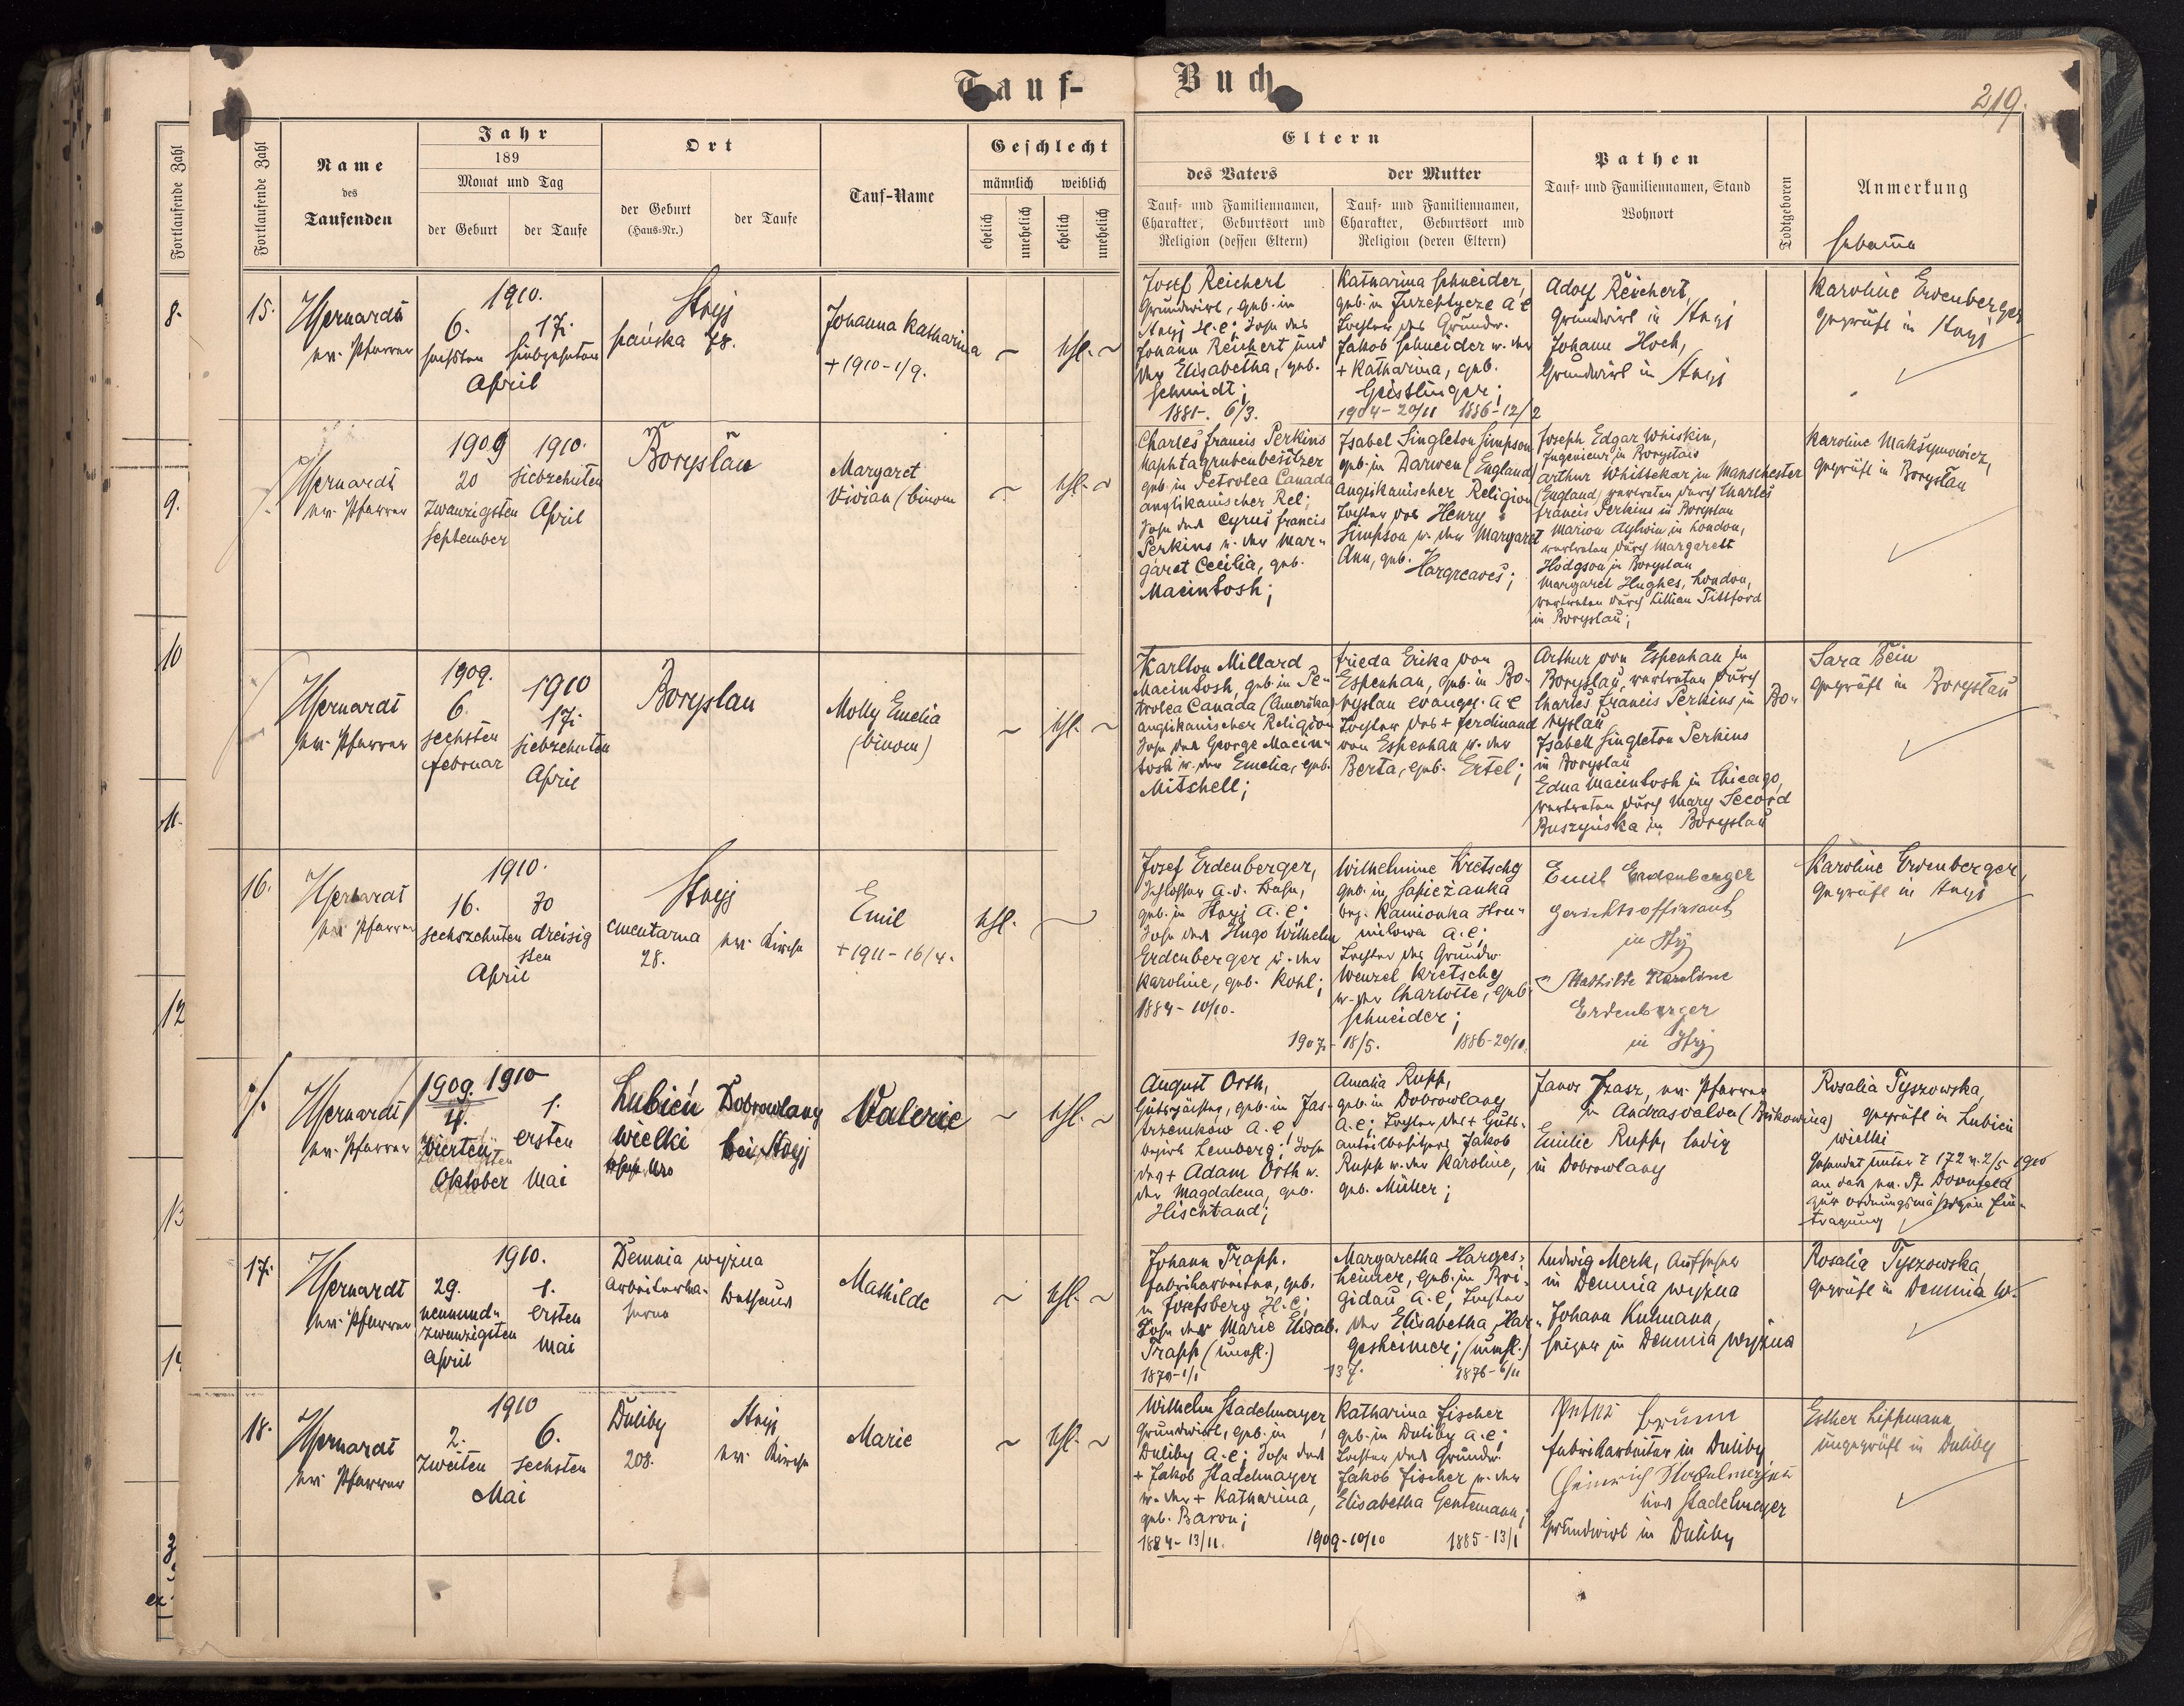 Tauf-Buch
219.
Fortlaufende Zahl
Fortlaufende Zahl
Name
des
Taufenden
Jahr
189
Monat und Tag
der Geburt
der Taufe
Ort
der Geburt
(Haus-Nr.)
der Taufe
Tauf-Name
Geschlecht
männlich
weiblich
ehelich
unehelich
ehelich
unehelich
Eltern
des Vaters
Tauf- und Familiennamen,
Charakter, Geburtsort und
Religion (dessen Eltern)
der Mutter
Tauf- und Familiennamen,
Charakter, Geburtsort und
Religion (deren Eltern)
Pathen
Tauf- und Familiennamen, Stand
Wohnort
Todtgeboren
Anmerkung
Hebamme
8.
9.
10
11.
12
13
14
15.
ev. Pfarrer
1910.
6.
sechsten
17.
siebzehnten
April
Stryj
pańska 78.
Johanna Katharina
+ 1910-1/9.
ehl.
Josef Reichert
Grundwirt, geb. in
Stryj H.C; Sohn des
Johann Reichert und
der Elisabetha, geb.
Schmidt;
1881-6/3.
Katharina Schneider,
Tochter des Grundw.
Jakob Schneider u. der
+ Katharina, geb.
Geistlinger;
1904-20/11 1886-12/2
Adolf Reichert,
Grundwirt in Stryj
Johann Hoch,
Grundwirt in Stryj
Karoline Erdenberger
geprüft in Stryj
ev. Pfarrer
1909
20
zwanzigsten
September
1910.
siebzehnten
April
Boryslau
Margaret
Vivian (binom
ehl.
Charles Francis Perkins
Naphtagrubenbesitzer
geb. in Petrolea Canada
anglikanischer Rel;
Sohn des Cyrus Francis
Perkins u. der Mar-
garet Cecilia, geb.
Macintosh;
Isabel Singleton Simpson
geb. in Darwen (England)
anglikanischer Religion
Tochter des Henry
Simpson u. der Margaret
Ann, geb.
Hargreaves;
Joseph Edgar Whiskin,
Ingenieur in Boryslau
Arthur Whittekar in Manschester
(England) vertreten durch Charles
Francis Perkins in Boryslau
Marion Aylwin in London,
vertreten durch Margarett
Hodgson in Boryslau
Margaret Hughes, London,
vertreten durch Lillian Tittford
in Boryslau;
Karoline Maksymowicz,
geprüft in Boryslau
ev. Pfarrer
1909.
6
sechsten
Februar
1910
17.
siebzehnten
April
Boryslau
Molly Emelia
(binom)
ehl.
Karlton Millard
Macintosh, geb. in Pe-
trolea Canada (Amerika)
anglikanischer Religion
Sohn des George Macin-
tosh u. der Emelia, geb.
Mitschell;
Frieda Erika von
Espenhan, geb. in Bo-
ryslau evangl. A C
Tochter des + Ferdinand
von Espenhan u. der
Berta, geb. Ertel;
Arthur von Espenhan in
Boryslau, vertreten durch
Charles Francis Perkins in Bo-
ryslau
Isabell Singleton Perkins
in Boryslau
Edna Macintosh in Chicago,
vertreten durch Mary Secord
Buszyńska in Boryslau
Sara Bein
geprüft in Boryslau
16.
ev. Pfarrer
1910.
16.
sechszehnten
30
dreisig
sten
April
Stryj
cmentarna
28.
ev. Kirche
Emil
+ 1911-16/4.
ehl.
Josef Erdenberger,
Schlosser a. d. Bahn,
geb. in Stryj A.C;
Sohn des Hugo Wilhelm
Erdenberger u. der
Karoline, geb. Kohl;
1884-10/10.
1907.-18/5.
Wilhelmine Kretschy
geb. in Sapieżanka
bez. Kamionka Stru-
milowa A.C;
Tochter des Grundw.
Wenzel Kretschy
u. der Charlotte, geb.
Schneider;
1886-20/10.
Emil Erdenberger
in Stryj
Mathilde Karoline
Erdenberger
in Stryj
Karoline Erdenberger,
geprüft in Stryj
ev. Pfarrer
1909.
4.
vierten
Oktober
1910
1.
ersten
Mai
Lubień
wielki
Dobrowlany
bei Stryj
Valerie
ehl.
August Orth,
Gutspächter, geb. in Jas-
trzemków A.C;
Bezirk Lemberg; Sohn
des + Adam Orth u.
der Magdalena, geb.
Hischtand;
Amalia Rupp,
geb. in Dobrowlany
A.C; Tochter des + Guts-
anteilbesitzers Jakob
Rupp u. der Karoline,
geb. Müller;
ev. Pfarrer
in Andrasvalva (Bukowina)
Emilie Rupp, ledig
in Dobrowlany
Rosalia Tyszowska,
geprüft in Lubien
wielki
Gesendet unter Z 172 v. 2/5 1910
an das ev. Pf. Dornfeld
zur ordnungsmässigen Ein-
tragung
17.
ev. Pfarrer
1910.
29.
neunund-
zwanzigsten
April
1.
ersten
Mai
Demnia wyżna
Bethaus
Mathilde
ehl.
Johann Trapp.
Fabriksarbeiter, geb.
in Josefsberg H.C;
Sohn der Marie Elisab.
Trapp (unehl.)
1879-1/1
Margaretha Harges-
heimer, geb. in Bri-
gidau A.C, Tochter
der Elisabetha Har-
gesheimer; (unehl.)
1876-6/11
Ludwig Merk, Aufseher
in Demnia wyżna
Johann Kulmann,
Heizer in Demnia wyżna
Rosalia Tyszowska,
geprüft in Demnia W.
18.
ev. Pfarrer
1910
2.
zweiten
6.
sechsten
Mai
Duliby
208.
Stryj
ev. Kirche
Marie
ehl.
Wilhelm Stadelmayer
Grundwirt, geb. in
Duliby A.C; Sohn des
+ Jakob Stadelmayer
u. der + Katharina,
geb. Baron;
1884-13/11.
1909-10/10
Katharina Fischer
geb. in Duliby A.C;
Tochter des Grundw.
Jakob Fischer u. der
Elisabetha Gentemann;
1885-13/1
Fabriksarbeiter in Duliby
Stadelmayer
Grundwirt in Duliby
Esther Lippmann,
ungeprüft in Duliby